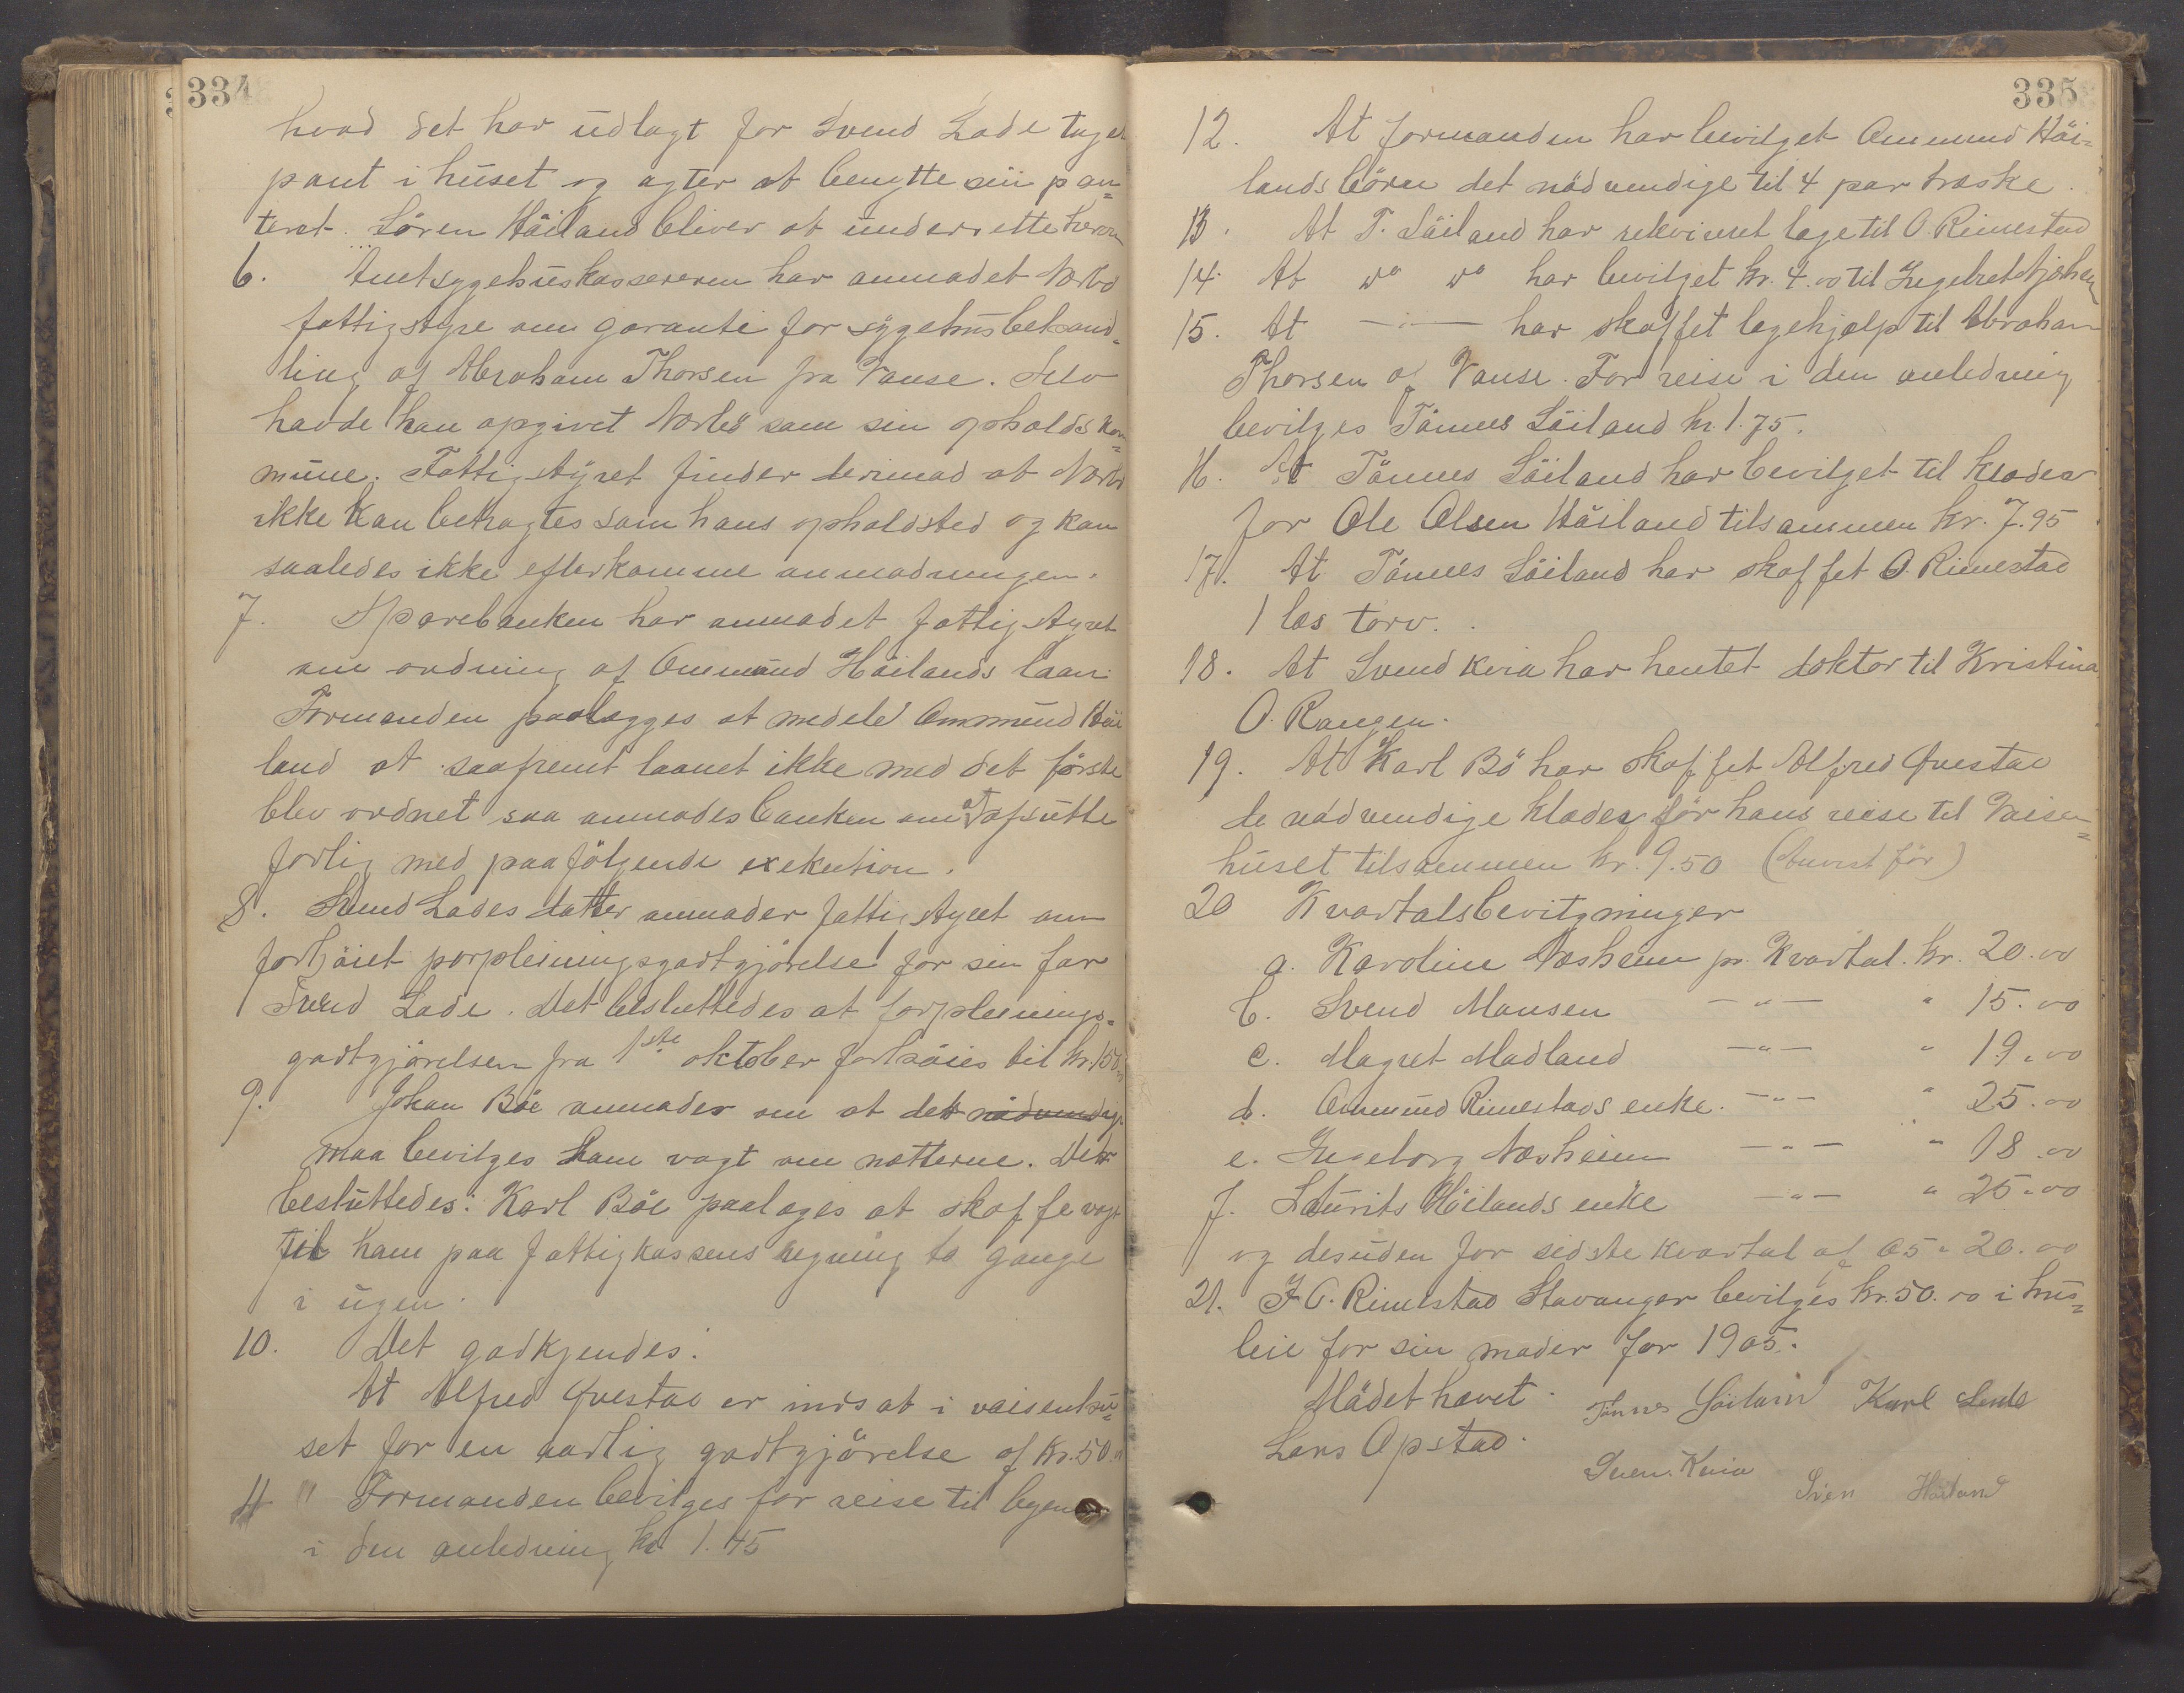 334
hvad det har udlagt for Svend Lode taget
pant i huset og agter at benytte sin pan=
teret. Sören Höiland bliver at underrette herom
6. Amtsygehuskassereren har anmodet Nærbö
fattigstyre om garanti for sygehusbehand=
ling af Abraham Thorsen fra Vanse. Selv
havde han opgivet Nærbö som sin opholdskom=
mune. Fattigstyret finder derimod at Nærbö
ikke kan betragtes som hans opholdsted og kan
saaledes ikke efterkomme anmodningen.
7. Sparebanken har anmodet fattigstyret
om ordning af Ommund Höilands laan.
Formanden paalægges at medele Ommund Höi
land at saafremt laanet ikke med det förste
blev ordnet saa anmodes banken om at afslutte
forlig med paafölgende exekution.
8. Svend Lodes datter anmoder fattigstyret om
forhöiet forpleiningsgodtgjörelse for sin far
Svend Lode. Det besluttedes at forpleinings=
godtgjörelsen fra 1ste oktober forhöies til kr. 150
9. Johan Böe anmoder om at det nödvendige
maa bevilges ham vagt om nætterne. Det
besluttedes: Karl Böe paalages at skaffe vagt
til ham paa fattigkassens regning to gange
i ugen.
10. Det godkjendes:
At Alfred Qvestad er indsat i vaisenhu=
set for en aarlig godtgjörelse af kr. 50.
11 " Formanden bevilges for reise til byen
i den anledning kr 1.45
335
12. At formanden har bevilget Ommund Höi=
lands börn det nödvendige til 4 par træske.
13. At T. Söiland har rekvireret læge til O. Rimestad
14. At do do har bevilget kr. 4.00 til Ingebret Njærheim
15. At —"— har skaffet lægehjælp til Abraham
Thorsen af Vanse. For reise i den anledning
bevilges Tönnes Söiland kr. 1.75.
16. At Tönnes Söiland har bevilget til klæder
for Ole Olsen Höiland tilsammen kr. 7.95
17. At Tönnes Söiland har skaffet O. Rimestad
1 læs torv.
18. At Svend Kvia har hentet doktor til Kristina
O. Rangen.
19. At Karl Bö har skaffet Alfred Qvestad
de nödvendige klæder för hans reise til Vaisen=
huset tilsammen kr. 9.50 (Anvist för)
20 Kvartalsbevilgninger
a. Karoline Næsheim pr. Kvartal. kr. 20.00
b. Svend Monsen —"— " 15.00
c. Magret Madland —"— " 19.00
d. Ommund Rimestads enke. —"— " 25.00
e. Ingeborg Næsheim —"— " 18.00
f. Laurits Höilands enke —"— " 25.00
og desuden for sidste kvartal af 05 " 20.00
21. J O. Rimestad Stavanger bevilges kr. 50.00 i hus=
leie for sin moder for 1905.
Mödet hævet. Tönnes Söiland Karl Lende
Lars Opstad.
Sven Kvia
Sören Höiland